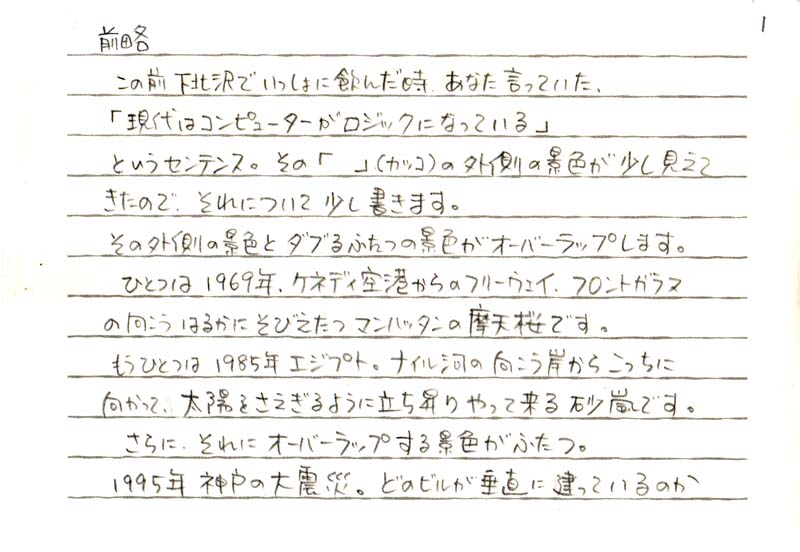 1
前略
この前 下北沢でいっしょに飲んだ時、あなた言っていた、
「現代はコンピューターがロジックになっている」
というセンテンス。その「　」(カッコ)の外側の景色が少し見えて
きたので、それについて少し書きます。
その外側の景色とダブるふたつの景色がオーバーラップします。
ひとつは1969年、ケネディ空港からのフリーウェイ、フロントガラス
の向こうはるかにそびえたつマンハッタンの摩天桜です。
もうひとつは1985年エジプト。ナイル河の向こう岸からこっちに
向かって、太陽をさえぎるように立ち昇りやって来る砂嵐です。
さらに、それにオーバーラップする景色がふたつ。
1995年 神戸の大震災。どのビルが垂直に建っているのか